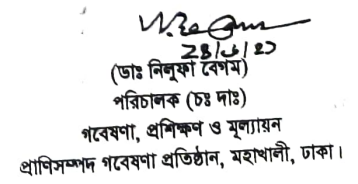 28/৬/২১
(ডাঃ নিলুফা বেগম)
পরিচালক (চঃ দাঃ)
গবেষণা, প্রশিক্ষণ ও মূল্যায়ন
প্রাণিসম্পদ গবেষণা প্রতিষ্ঠান, মহাখালী, ঢাকা।